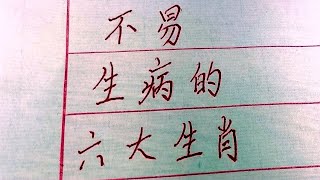 不易
生病的
六大生肖